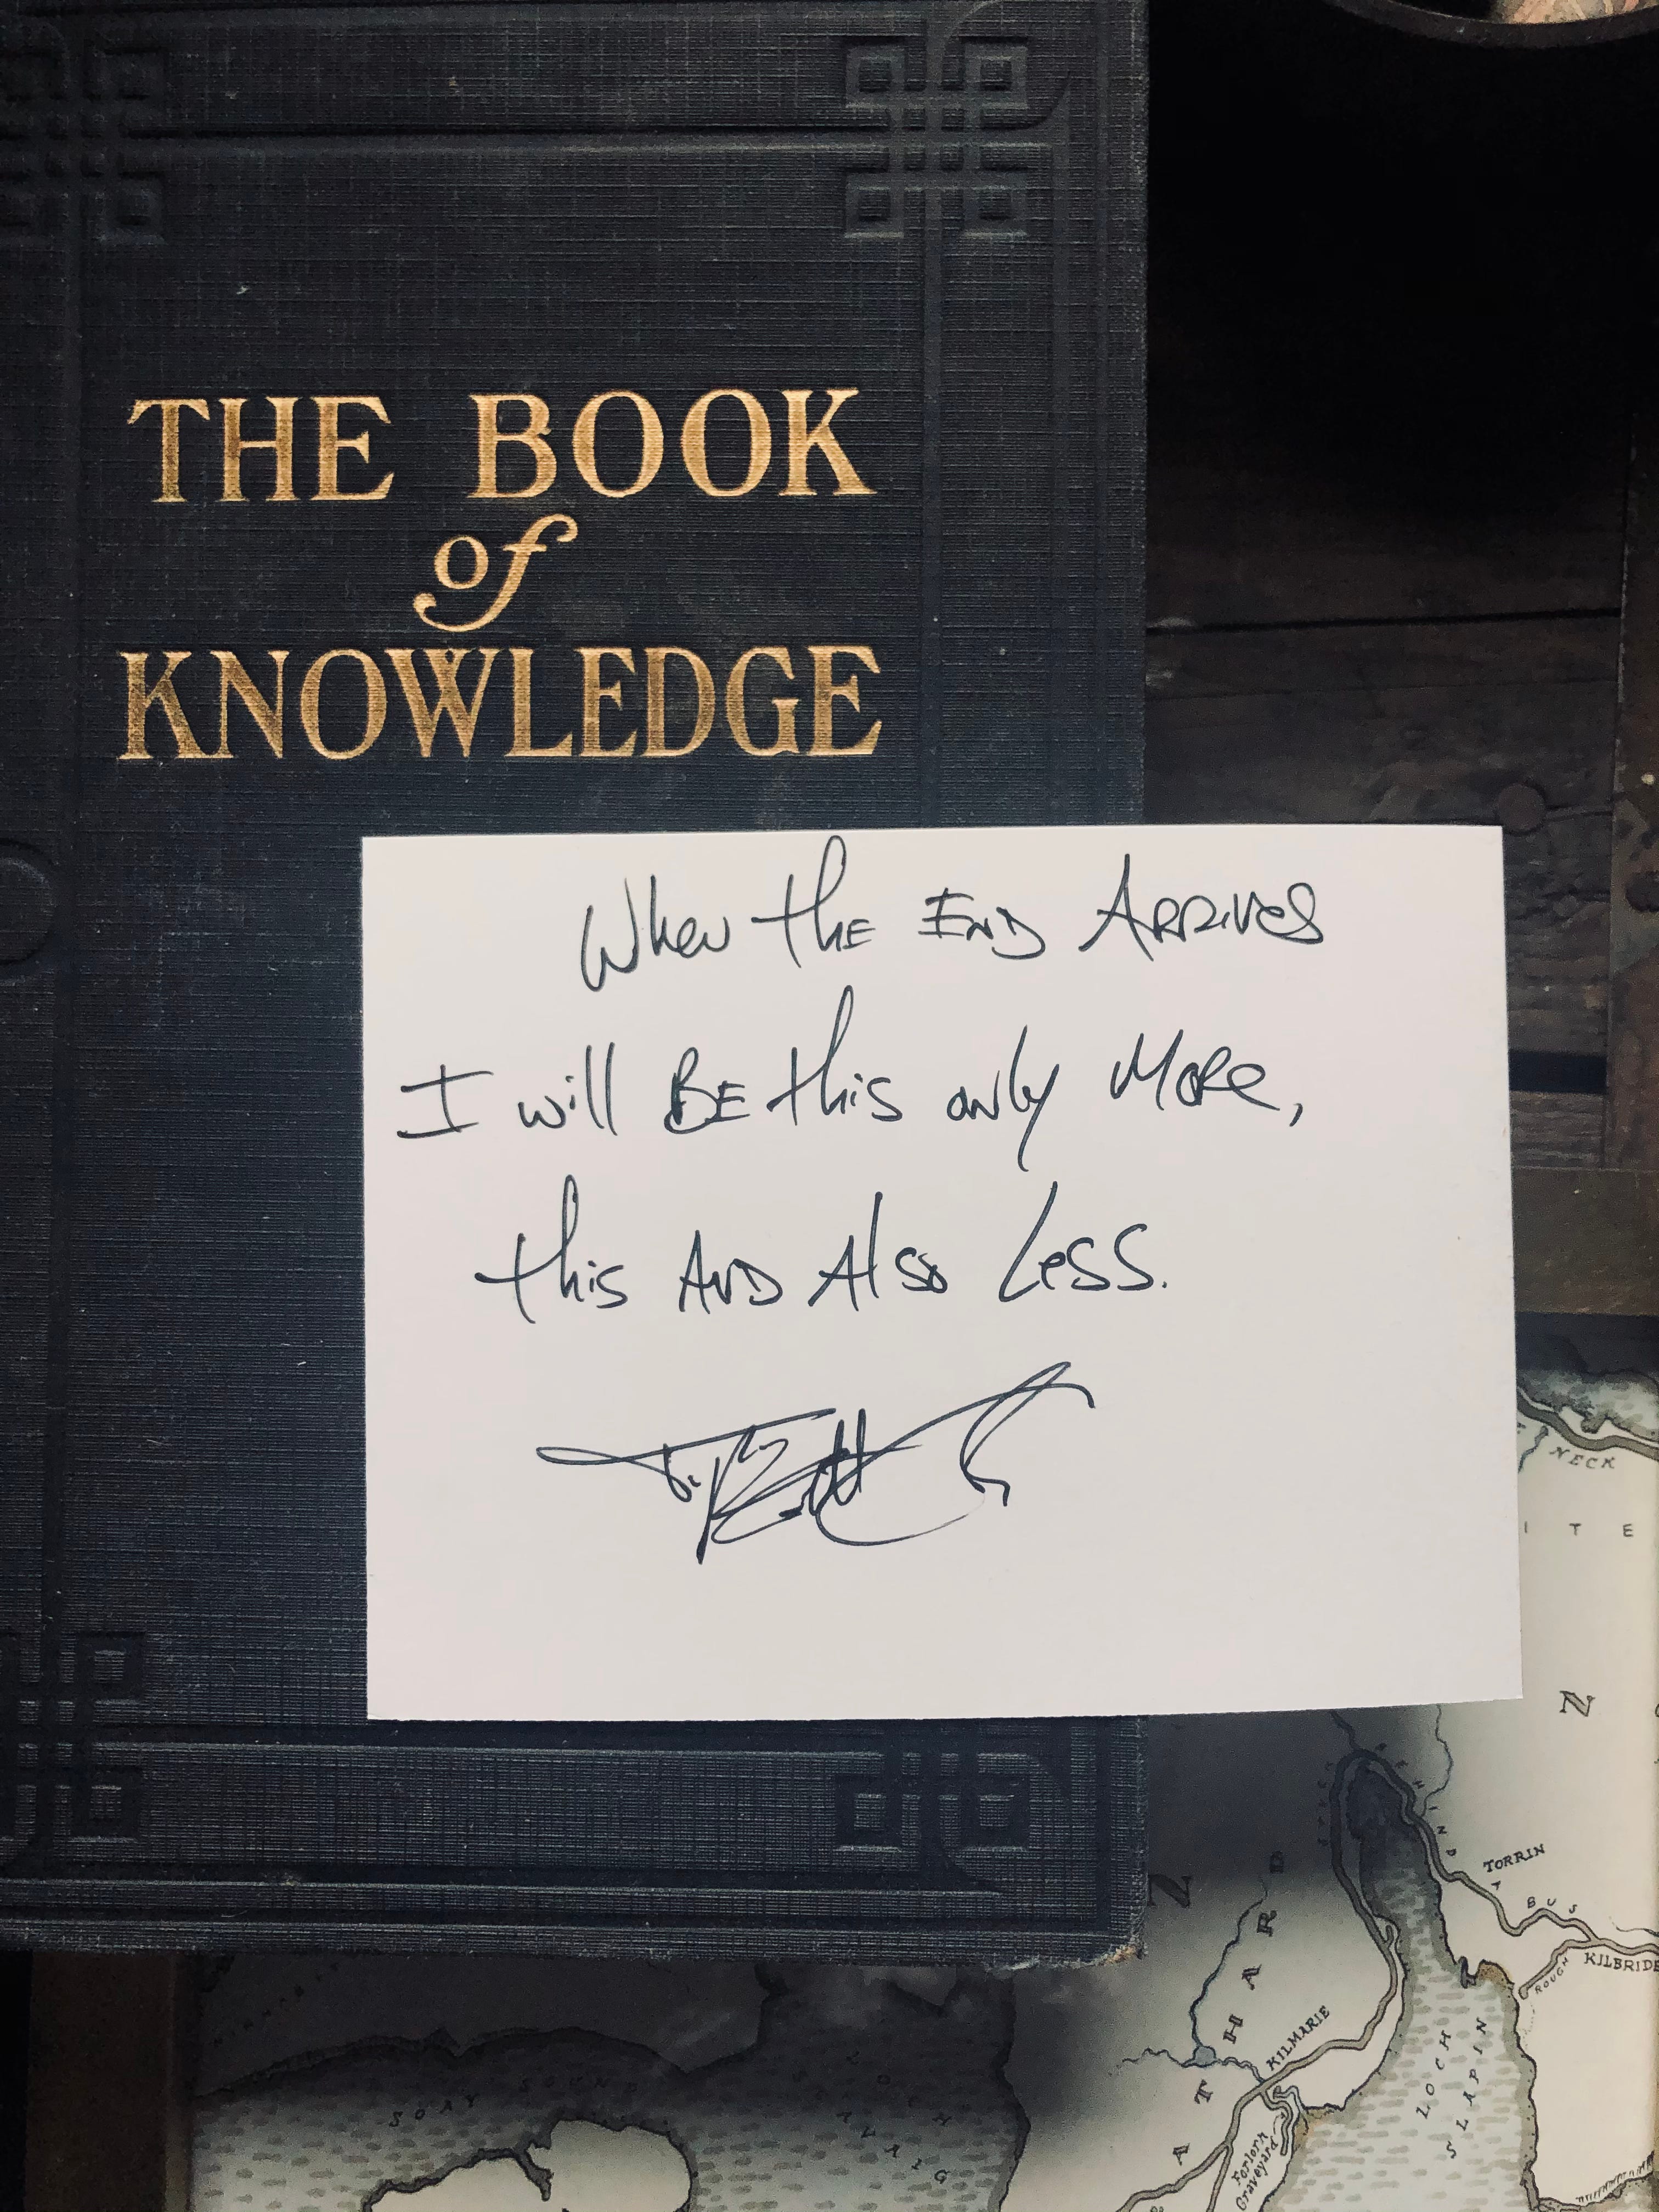 THE BOOK
of
KNOWLEDGE
When the END ARRIVES
I will BE this only More,
this AND Also Less.
NECK
I T E
N
TORRIN
BUS
KILBRIDE
ROUGH
KILMARIE
LOCH
SLAPIN
Forlorn
Graveyard
SOAY SOUND